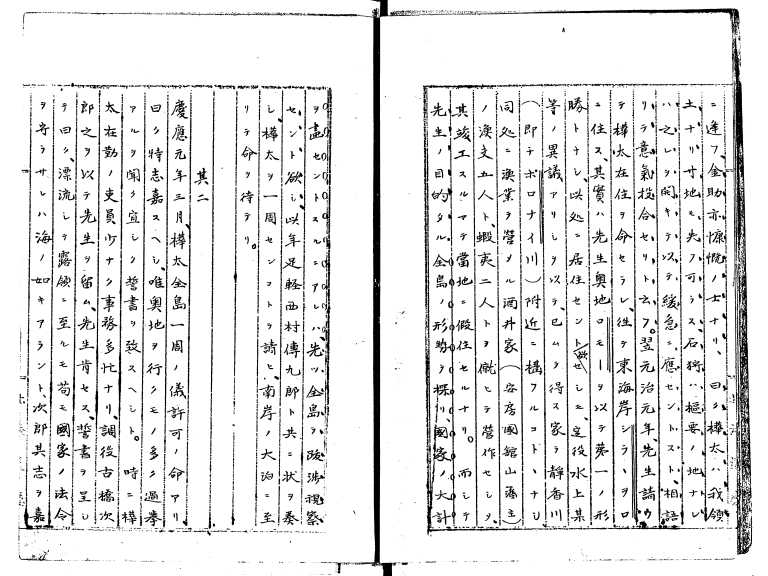 ニ逢フ、金助亦慷慨ノ士ナリ、曰ク樺太ハ我領
土ナリ寸地モ失フ可ラス石狩ハ樞要ノ地ナレ
ハ之レヲ開キテ以テ緩急ニ應セントスト、相語
リテ意氣投合セリト云フ。翌元治元年、先生請ウ
テ樺太在住ヲ命セラレ、往テ東海岸シラヽヲロ
ニ住ス、其實ハ先生奥地ロモーヲ以テ第一ノ形
勝トナシ以処ニ居住セント欲セシモ、皇役水上某
等ノ異議アリシヲ以テ、已ムヲ得ス家ヲ静香川
（即チホロナイ川）附近ニ構フルコトトナシ
同処ニ漁業ヲ營メル酒井家（安房國館山藩主）
ノ漁支五人ト、蝦夷二人トヲ僦ヒテ營作セシヲ、
其竣工スルマテ當地ニ假住セルナリ。而シテ
先生ノ目的タル全島ノ形勢ヲ探リ、國家ノ大計
ヲ盡セントスルニアレハ、先ツ全島ヲ跋渉視察
セント欲シ、以年足軽西村傳九郎ト共ニ状ヲ奏
シ、樺太ヲ一周センコトヲ請ヒ、南岸ノ大泊ニ至
リテ命ヲ待テリ。
其二
慶應元年三月、樺太全島一周ノ儀許可ノ命アリ
曰ク特志嘉スヘシ、唯奥地ヲ行クモノ多ク過挙
アルヲ聞ク宜シク誓書ヲ致スヘシト。時ニ樺
太在勤ノ吏員少ナク事務多忙ナリ、調役古橋次
郎之ヲ以テ先生ヲ留ム、先生肯セス、誓書ヲ呈シ
テ曰ク、漂流シテ露領ニ至ルモ苟モ國家ノ法令
ヲ守ラサレハ海ノ如キアラント、次郎其志ヲ嘉